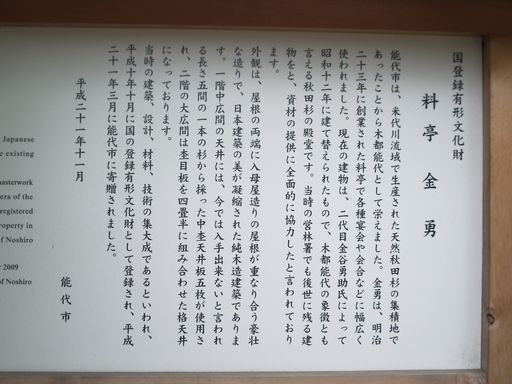 国登録有形文化財
料亭 金勇
能代市は、米代川流域で生産された天然秋田杉の集積地で
あったことから木都能代として栄えました。金勇は、明治
二十三年に創業された料亭で各種宴会や会合などに幅広く
使われました。現在の建物は、二代目金谷勇助氏によって
昭和十二年に建て替えられたもので、木都能代の象徴とも
言える秋田杉の殿堂です。当時の営林署でも後世に残る建
物をと、資材の提供に全面的に協力したと言われており
ます。
外観は、屋根の両端に入母屋造りの屋根が重なり合う豪壮
な造りで、日本建築の美が凝縮された純木造建築でありま
す。一階中広間の天井には、今では入手出来ないと言われ
る長さ五間の一本の杉から採った中杢天井板五枚が使用さ
れ、二階の大広間は杢目板を四畳半に組み合わせた格天井
になっております。
当時の建築、設計、材料、技術の集大成であるといわれ、
平成十年十月に国の登録有形文化財として登録され、平成
二十一年三月に能代市に寄贈されました。
平成二十一年十一月
能代市
Japanese
e existing
asterwork
era of the
registered
operty in
f Noshiro
2009
of Noshiro